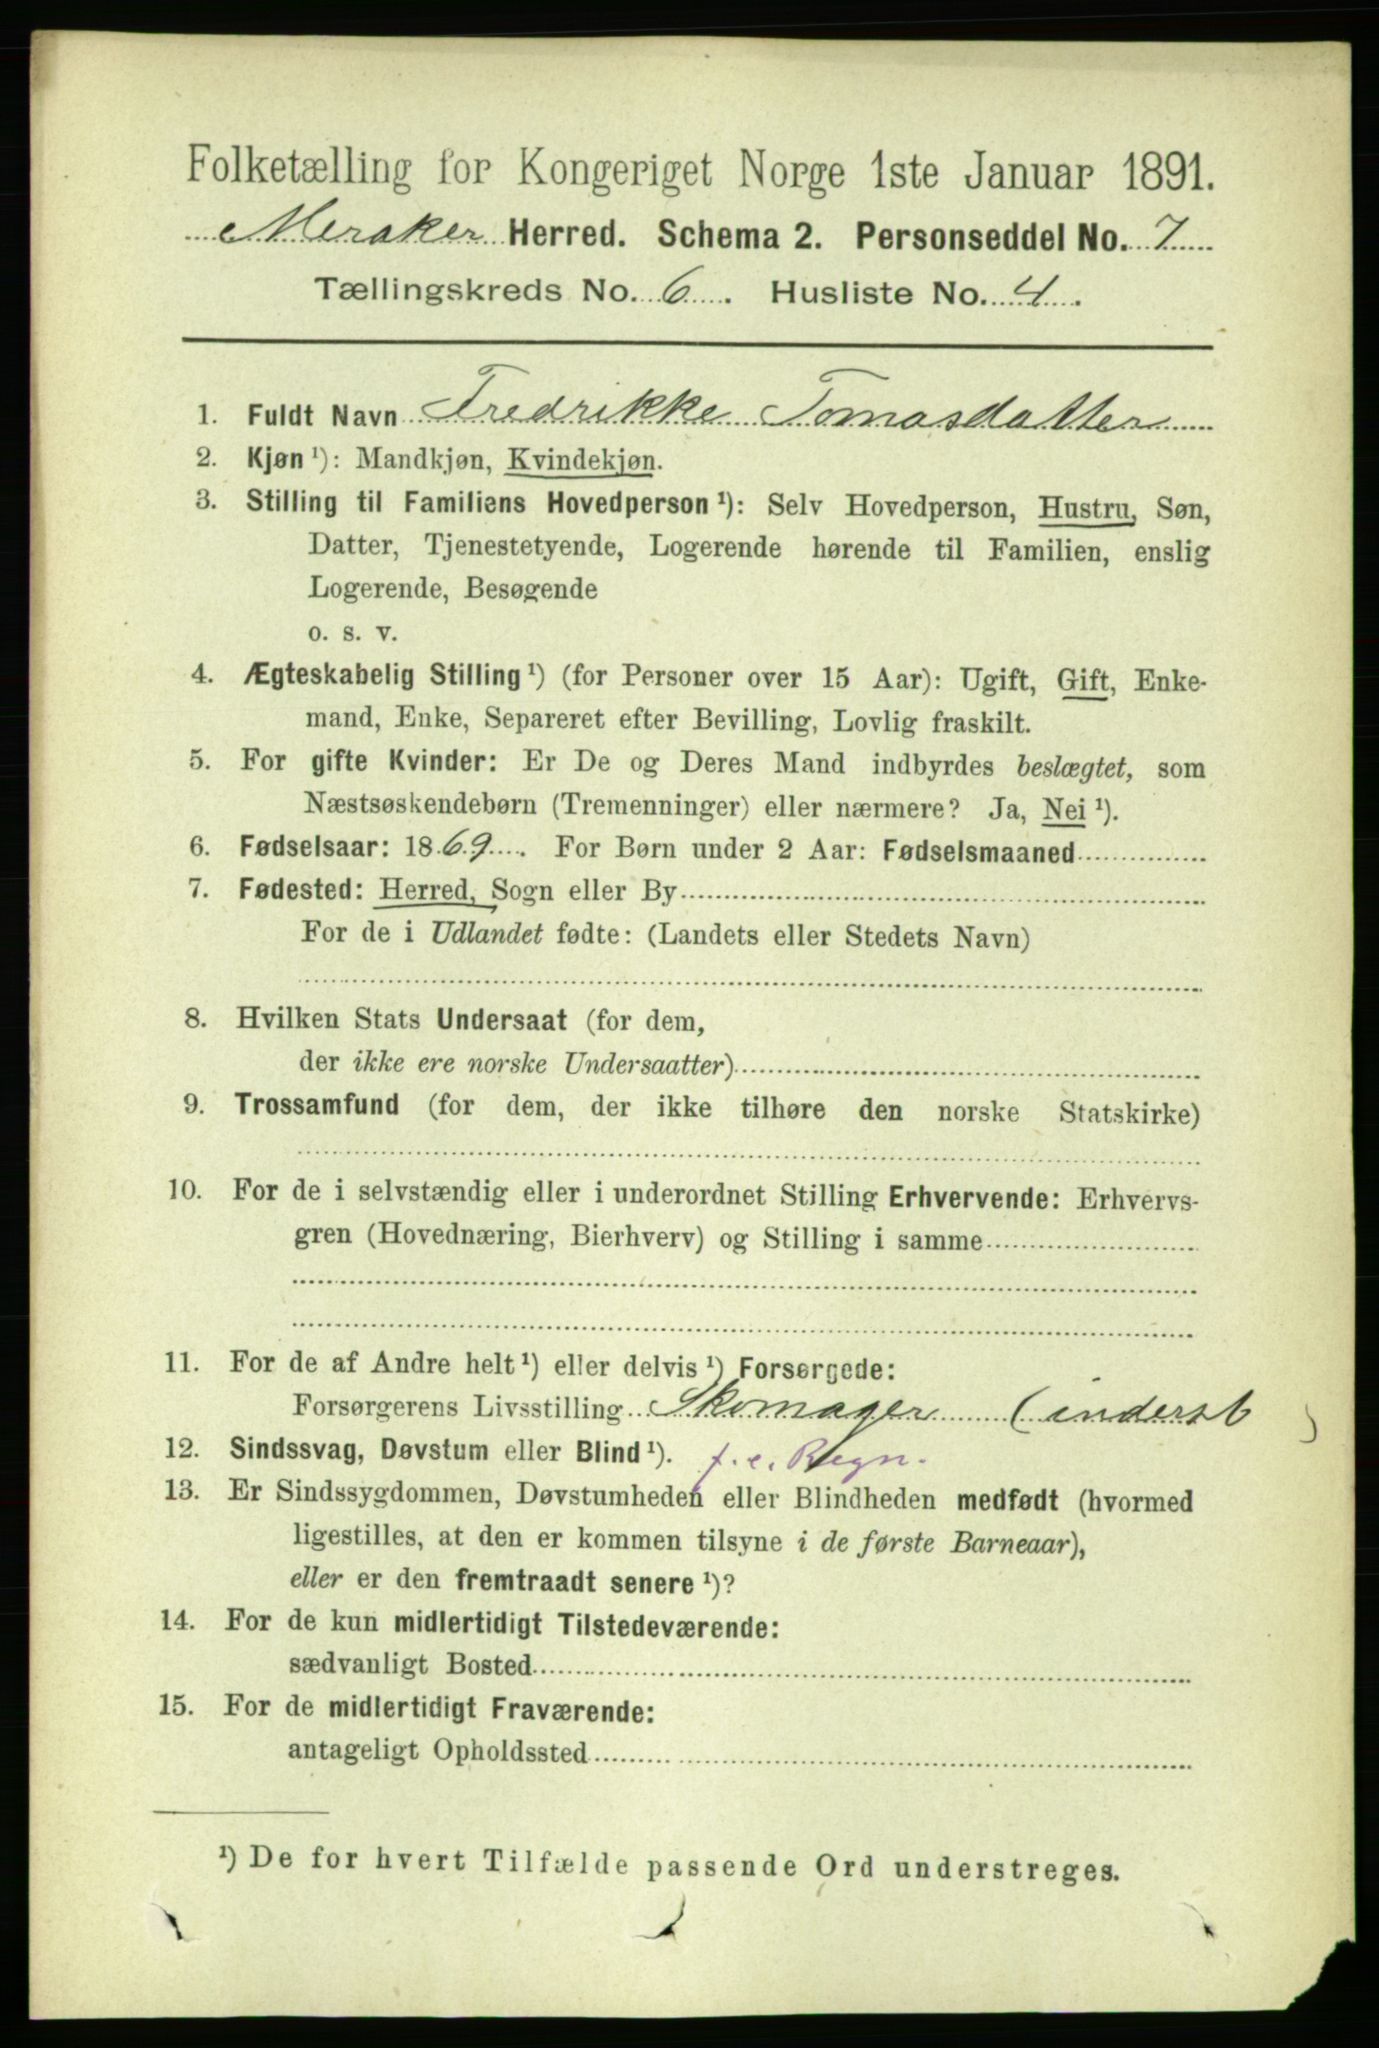 Folketælling for Kongeriget Norge 1ste Januar 1891.
Meraker Herred. Schema 2. Personseddel No. 7
Tællingskreds No. 6. Husliste No. 4.
1. Fuldt Navn Fredrikke Tomasdatter
2. Kjøn ¹): Mandkjøn, Kvindekjøn.
3. Stilling til Familiens Hovedperson ¹): Selv Hovedperson, Hustru, Søn,
Datter, Tjenestetyende, Logerende hørende til Familien, enslig
Logerende, Besøgende
o. s. v.
4. Ægteskabelig Stilling ¹) (for Personer over 15 Aar): Ugift, Gift, Enke-
mand, Enke, Separeret efter Bevilling, Lovlig fraskilt.
5. For gifte Kvinder: Er De og Deres Mand indbyrdes beslægtet, som
Næstsøskendebørn (Tremenninger) eller nærmere? Ja, Nei ¹).
6. Fødselsaar: 1869. For Børn under 2 Aar: Fødselsmaaned
7. Fødested: Herred, Sogn eller By
For de i Udlandet fødte: (Landets eller Stedets Navn)
8. Hvilken Stats Undersaat (for dem,
der ikke ere norske Undersaatter)
9. Trossamfund (for dem, der ikke tilhøre den norske Statskirke)
10. For de i selvstændig eller i underordnet Stilling Erhvervende: Erhvervs-
gren (Hovednæring, Bierhverv) og Stilling i samme
11. For de af Andre helt ¹) eller delvis ¹) Forsørgede:
Forsørgerens Livsstilling Skomager (inderst)
12. Sindssvag, Døvstum eller Blind ¹). f. e. Regn.
13. Er Sindssygdommen, Døvstumheden eller Blindheden medfødt (hvormed
ligestilles, at den er kommen tilsyne i de første Barneaar),
eller er den fremtraadt senere ¹)?
14. For de kun midlertidigt Tilstedeværende:
sædvanligt Bosted
15. For de midlertidigt Fraværende:
antageligt Opholdssted
¹) De for hvert Tilfælde passende Ord understreges.